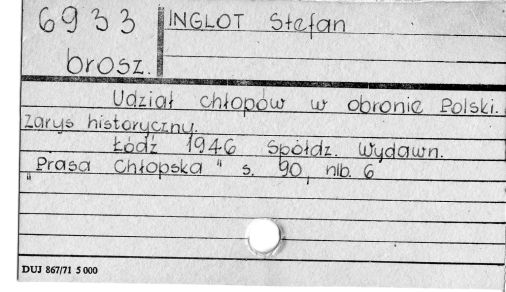 6933 INGLOT Stefan
brosz.
Udział chłopów w obronie Polski.
Zarys historyczny.
Łódź 1946 Spółdz. Wydawn.
„Prasa Chłopska" s. 90, nlb. 6
DUJ 867/71 5 000